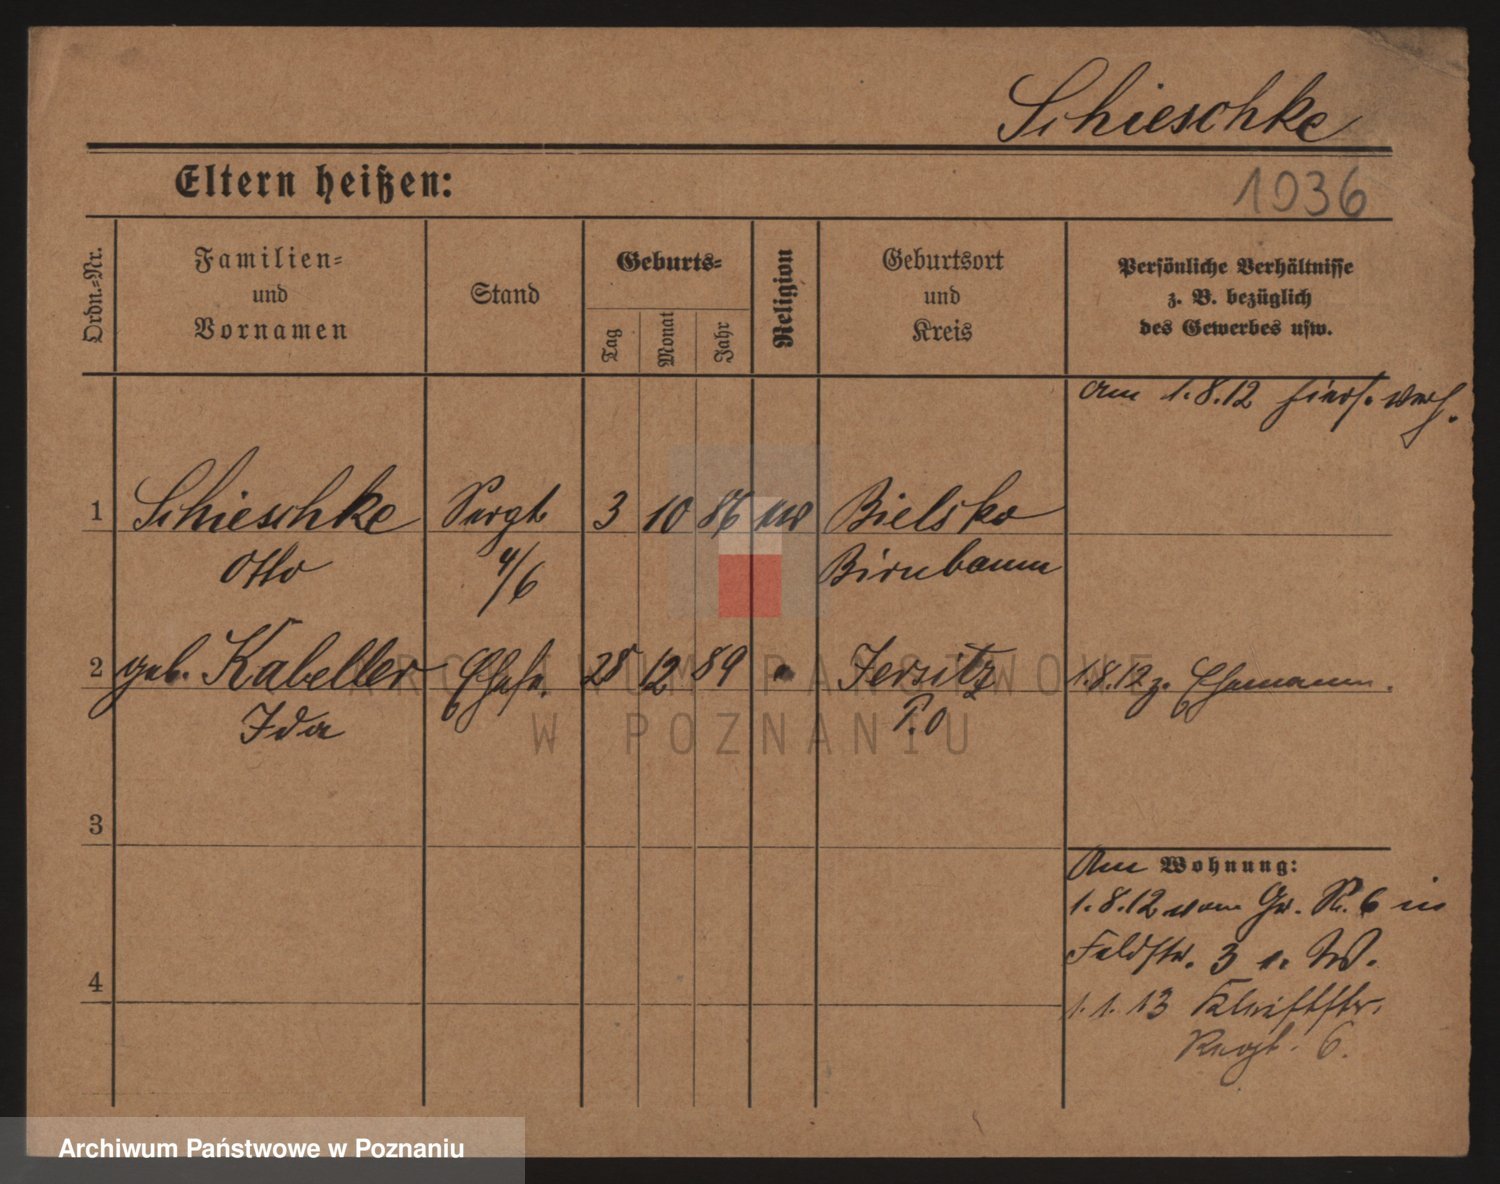 Schieschke
Eltern heißen:
1036
Ordn.-Nr.
Familien-
und
Vornamen
Stand
Geburts-
Tag
Monat
Jahr
Religion
Geburtsort
und
Kreis
Persönliche Verhältnisse
z. B. bezüglich
des Gewerbes usw.
Am 1.8.12 hiers. verh.
1 Schieschke Sergt 3 10 86 ev Bielsko
Otto 4/6 Birnbaum
2 geb. Kabeller Ehefr. 28 12 89 " Jersitz 1.8.12 z. Ehemann.
Ida P.O
3
Am Wohnung:
1.8.12 vom Gr. R. 6 in
Feldstr. 3 v. W.
4
1.1.13
6.
ARCHIWUM PAŃSTWOWE
W POZNANIU
Archiwum Państwowe w Poznaniu